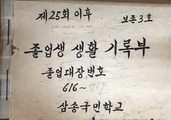 제25회 이후
보존3호
졸업생 생활 기록부
졸업대장번호
616~717
삼송국민학교